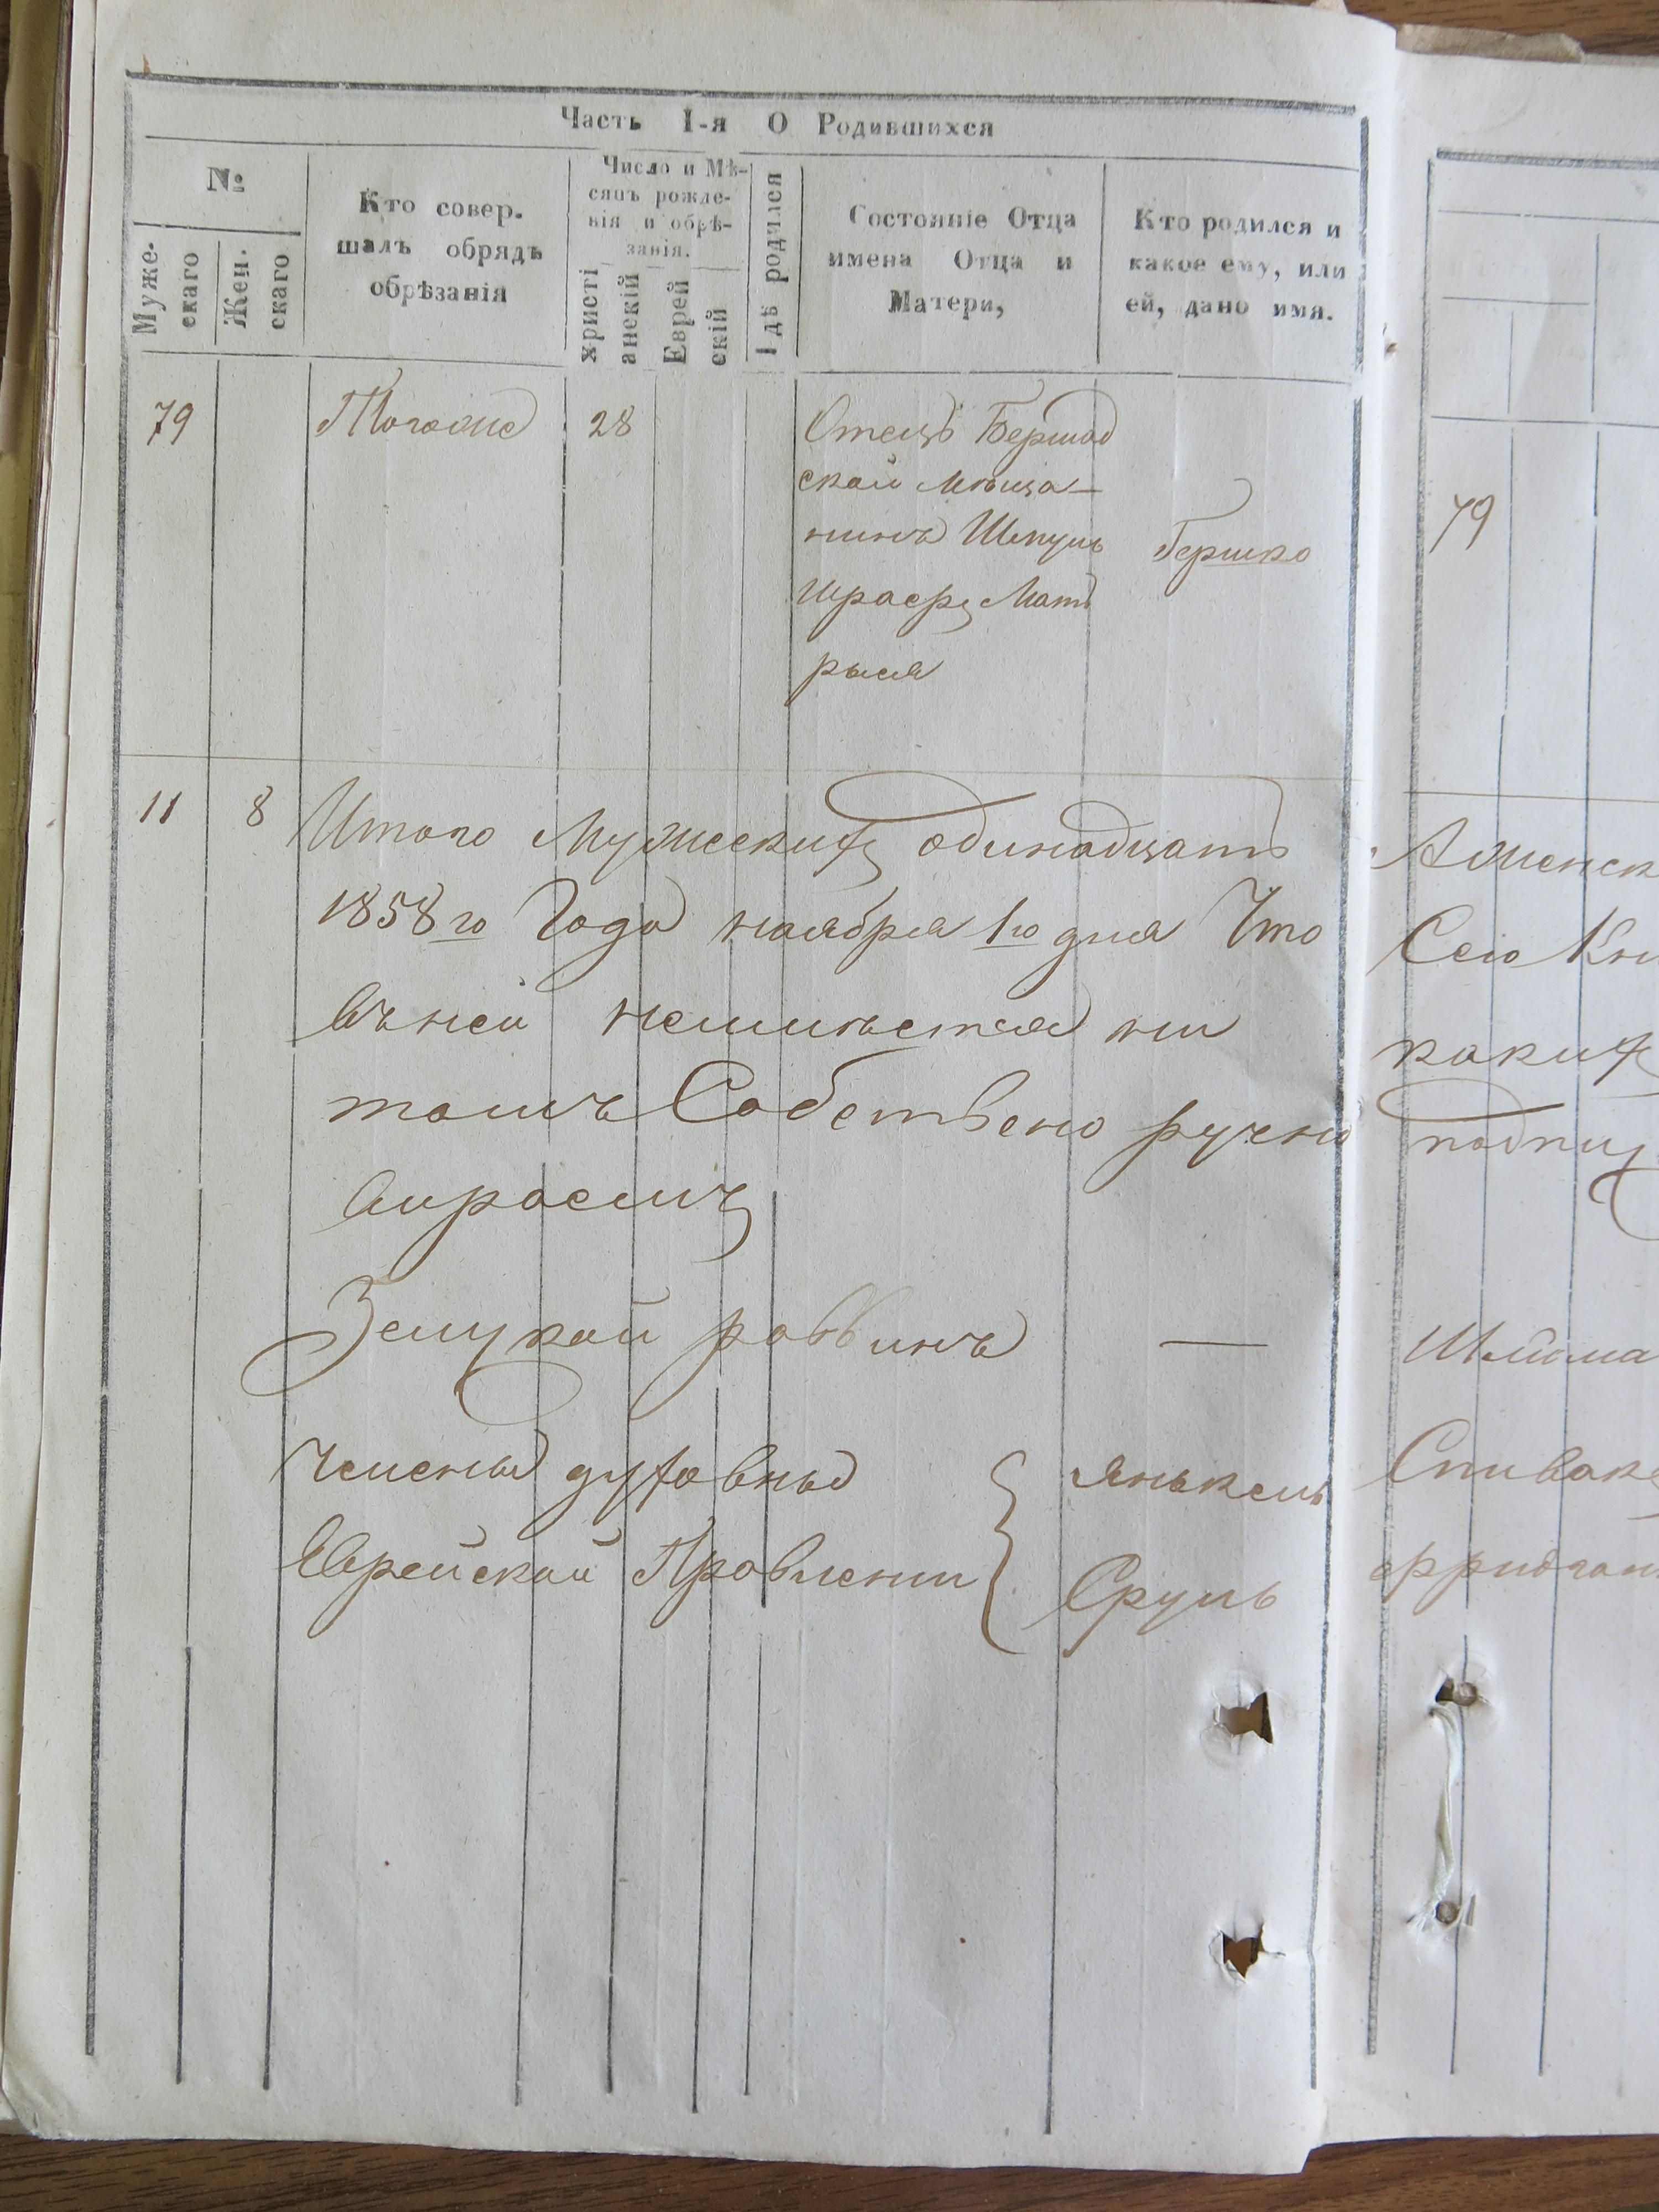 Часть I-я О Родившихся
№
Муже-
скаго
Жен.
скаго
Кто совер-
шалъ обрядъ
обрѣзанія
Число и Мѣ-
сяцъ рожде-
нія и обрѣ-
занія.
христі
анскій
Еврей
скій
Гдѣ родился
Состояніе Отца
имена Отца и
Матери,
Кто родился и
какое ему, или
ей, дано имя.
79 Тогоже 28 Отецъ Бершад
ской мѣща-
нинъ Шмуль
Мать
рыся
Гершко
79
11 8 Итого Мужских одинадцать
1858го Года ноября 1го дня Что
въ ней неимѣется ни
Собствено ручно
раввинъ —
Члены духовныя
Еврейской Правлении
Янькель
Сруль
А женск
Сею Кни
каких
подпи
Шлиома
Спивак